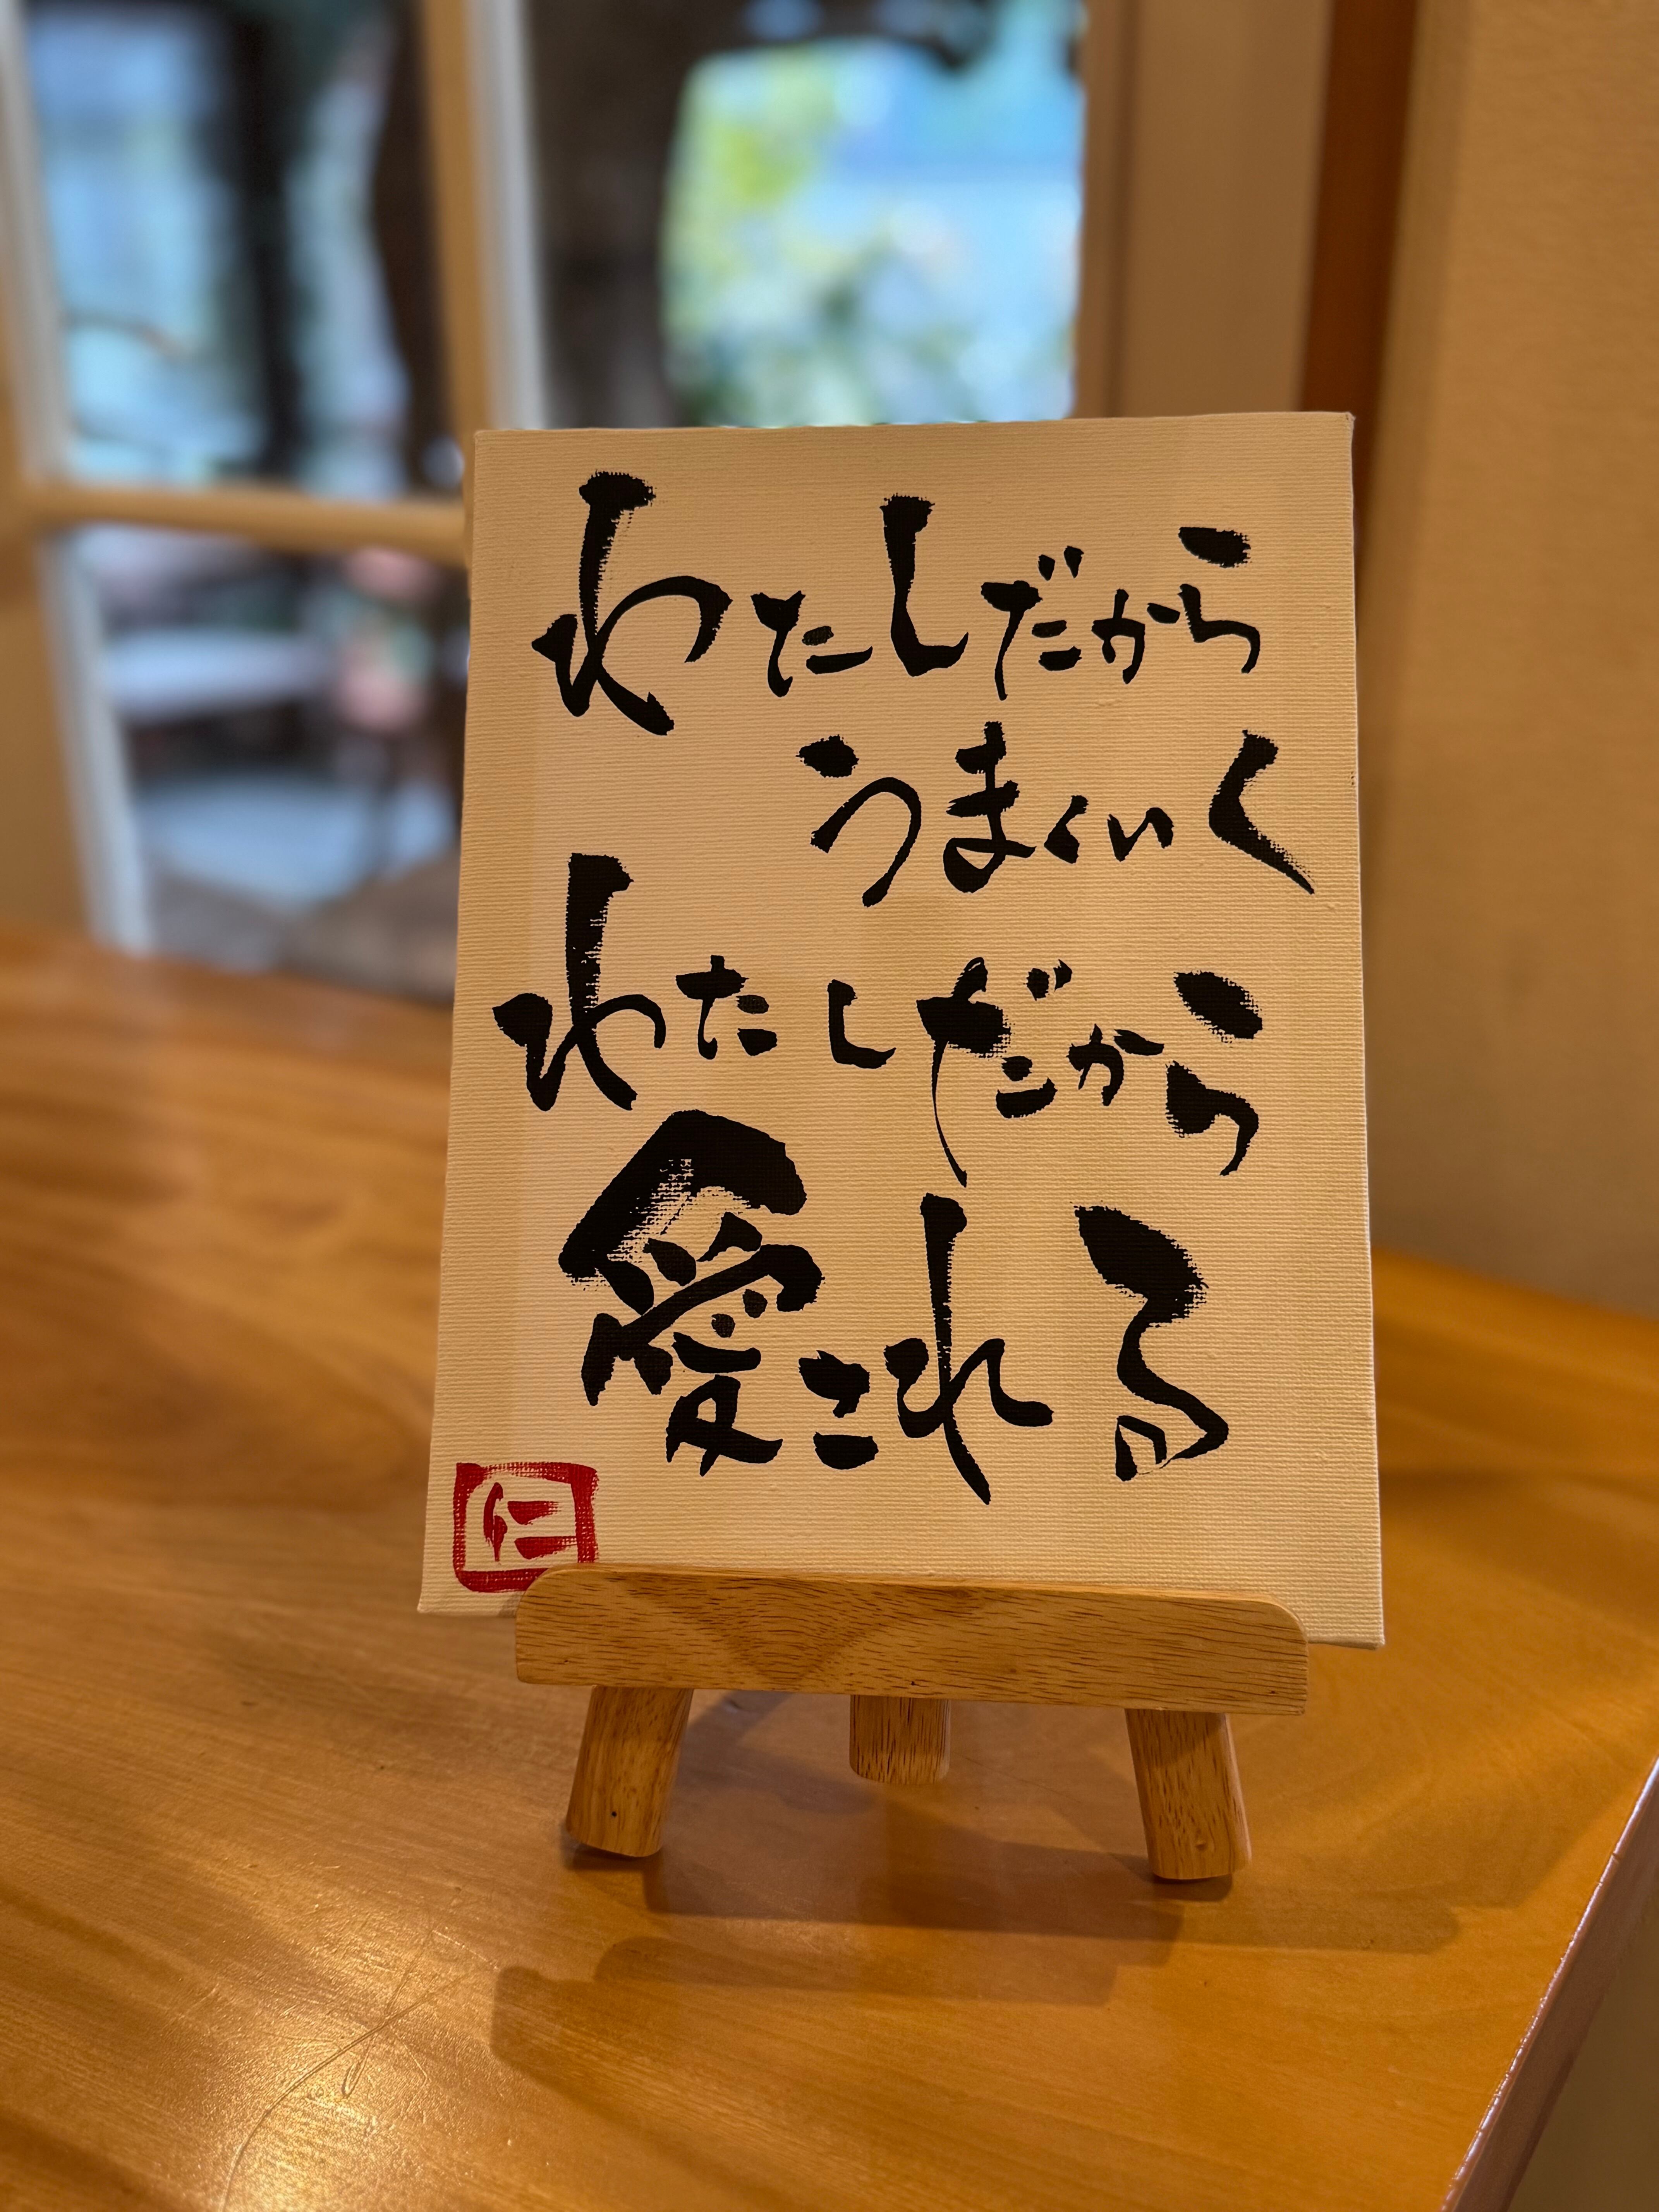 わたしだから
うまくいく
わたしだから
愛される
仁